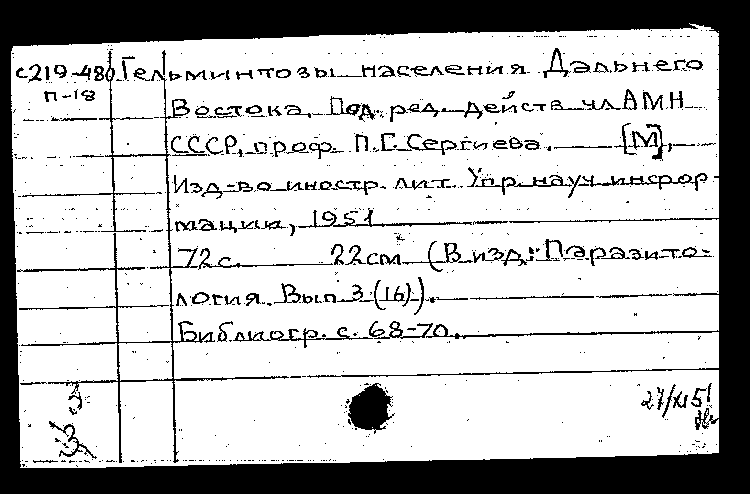 с219-480 Гельминтозы населения Дальнего
п-18 Востока. Под. ред. действ чл АМН
СССР, проф. П.Г. Сергиева. [М],
Изд-во иностр. лит. Упр. науч. инфор-
мации, 1951
72с. 22см (В изд.: Паразито-
логия. Вып 3 (16).).
Библиогр. с. 68-70.
27/XI 51